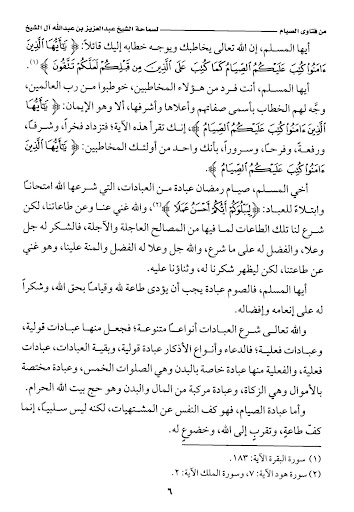 من فتاوى الصيام لسماحة الشيخ عبدالعزيز بن عبدالله آل الشيخ
أيها المسلم، إن الله تعالى يخاطبك ويوجه خطابه إليك قائلاً: ﴿ يَٰٓأَيُّهَا ٱلَّذِينَ
ءَامَنُوا۟ كُتِبَ عَلَيْكُمُ ٱلصِّيَامُ كَمَا كُتِبَ عَلَى ٱلَّذِينَ مِن قَبْلِكُمْ لَعَلَّكُمْ تَتَّقُونَ ﴾(١).
أيها المسلم، أنت فرد من هؤلاء المخاطبين، خوطبوا من رب العالمين،
وجَّه لهم الخطاب بأسمى صفاتهم وأعلاها وأشرفها، ألا وهو الإيمان: ﴿ يَٰٓأَيُّهَا
ٱلَّذِينَ ءَامَنُوا۟ كُتِبَ عَلَيْكُمُ ٱلصِّيَامُ ﴾، إنك تقرأ هذه الآية؛ فتزداد فخراً، وشرفاً،
ورفعةً، وفرحاً، وسروراً، بأنك واحد من أولئك المخاطبين: ﴿ يَٰٓأَيُّهَا ٱلَّذِينَ
ءَامَنُوا۟ كُتِبَ عَلَيْكُمُ ٱلصِّيَامُ ﴾.
أخي المسلم، صيام رمضان عبادة من العبادات، التي شرعها الله امتحاناً
وابتلاءً للعباد: ﴿ لِيَبْلُوَكُمْ أَيُّكُمْ أَحْسَنُ عَمَلًا ﴾(٢)، والله غني عنا وعن طاعاتنا، لكن
شرع لنا تلك الطاعات لما فيها من المصالح العاجلة والآجلة، فالشكر له جل
وعلا، والفضل له على ما شرع، والله جل وعلا له الفضل والمنة علينا، وهو غني
عن طاعتنا، لكن ليظهر شكرنا له، وثناؤنا عليه.
أيها المسلم، فالصوم عبادة يجب أن يؤدى طاعة لله وقياماً بحق الله، وشكراً
له على إنعامه وإفضاله.
والله تعالى شرع العبادات أنواعاً متنوعة؛ فجعل منها عبادات قولية،
وعبادات فعلية؛ فالدعاء وأنواع الأذكار عبادة قولية، وبقية العبادات، عبادات
فعلية، والفعلية منها عبادة خاصة بالبدن وهي الصلوات الخمس، وعبادة مختصة
بالأموال وهي الزكاة، وعبادة مركبة من المال والبدن وهو حج بيت الله الحرام.
وأما عبادة الصيام، فهو كف النفس عن المشتهيات، لكنه ليس سلبياً، إنما
كفّ طاعةٍ، وتقربٍ إلى الله، وخضوعٍ له.
(١) سورة البقرة الآية: ١٨٣.
(٢) سورة هود الآية: ٧، وسورة الملك الآية: ٢.
٦